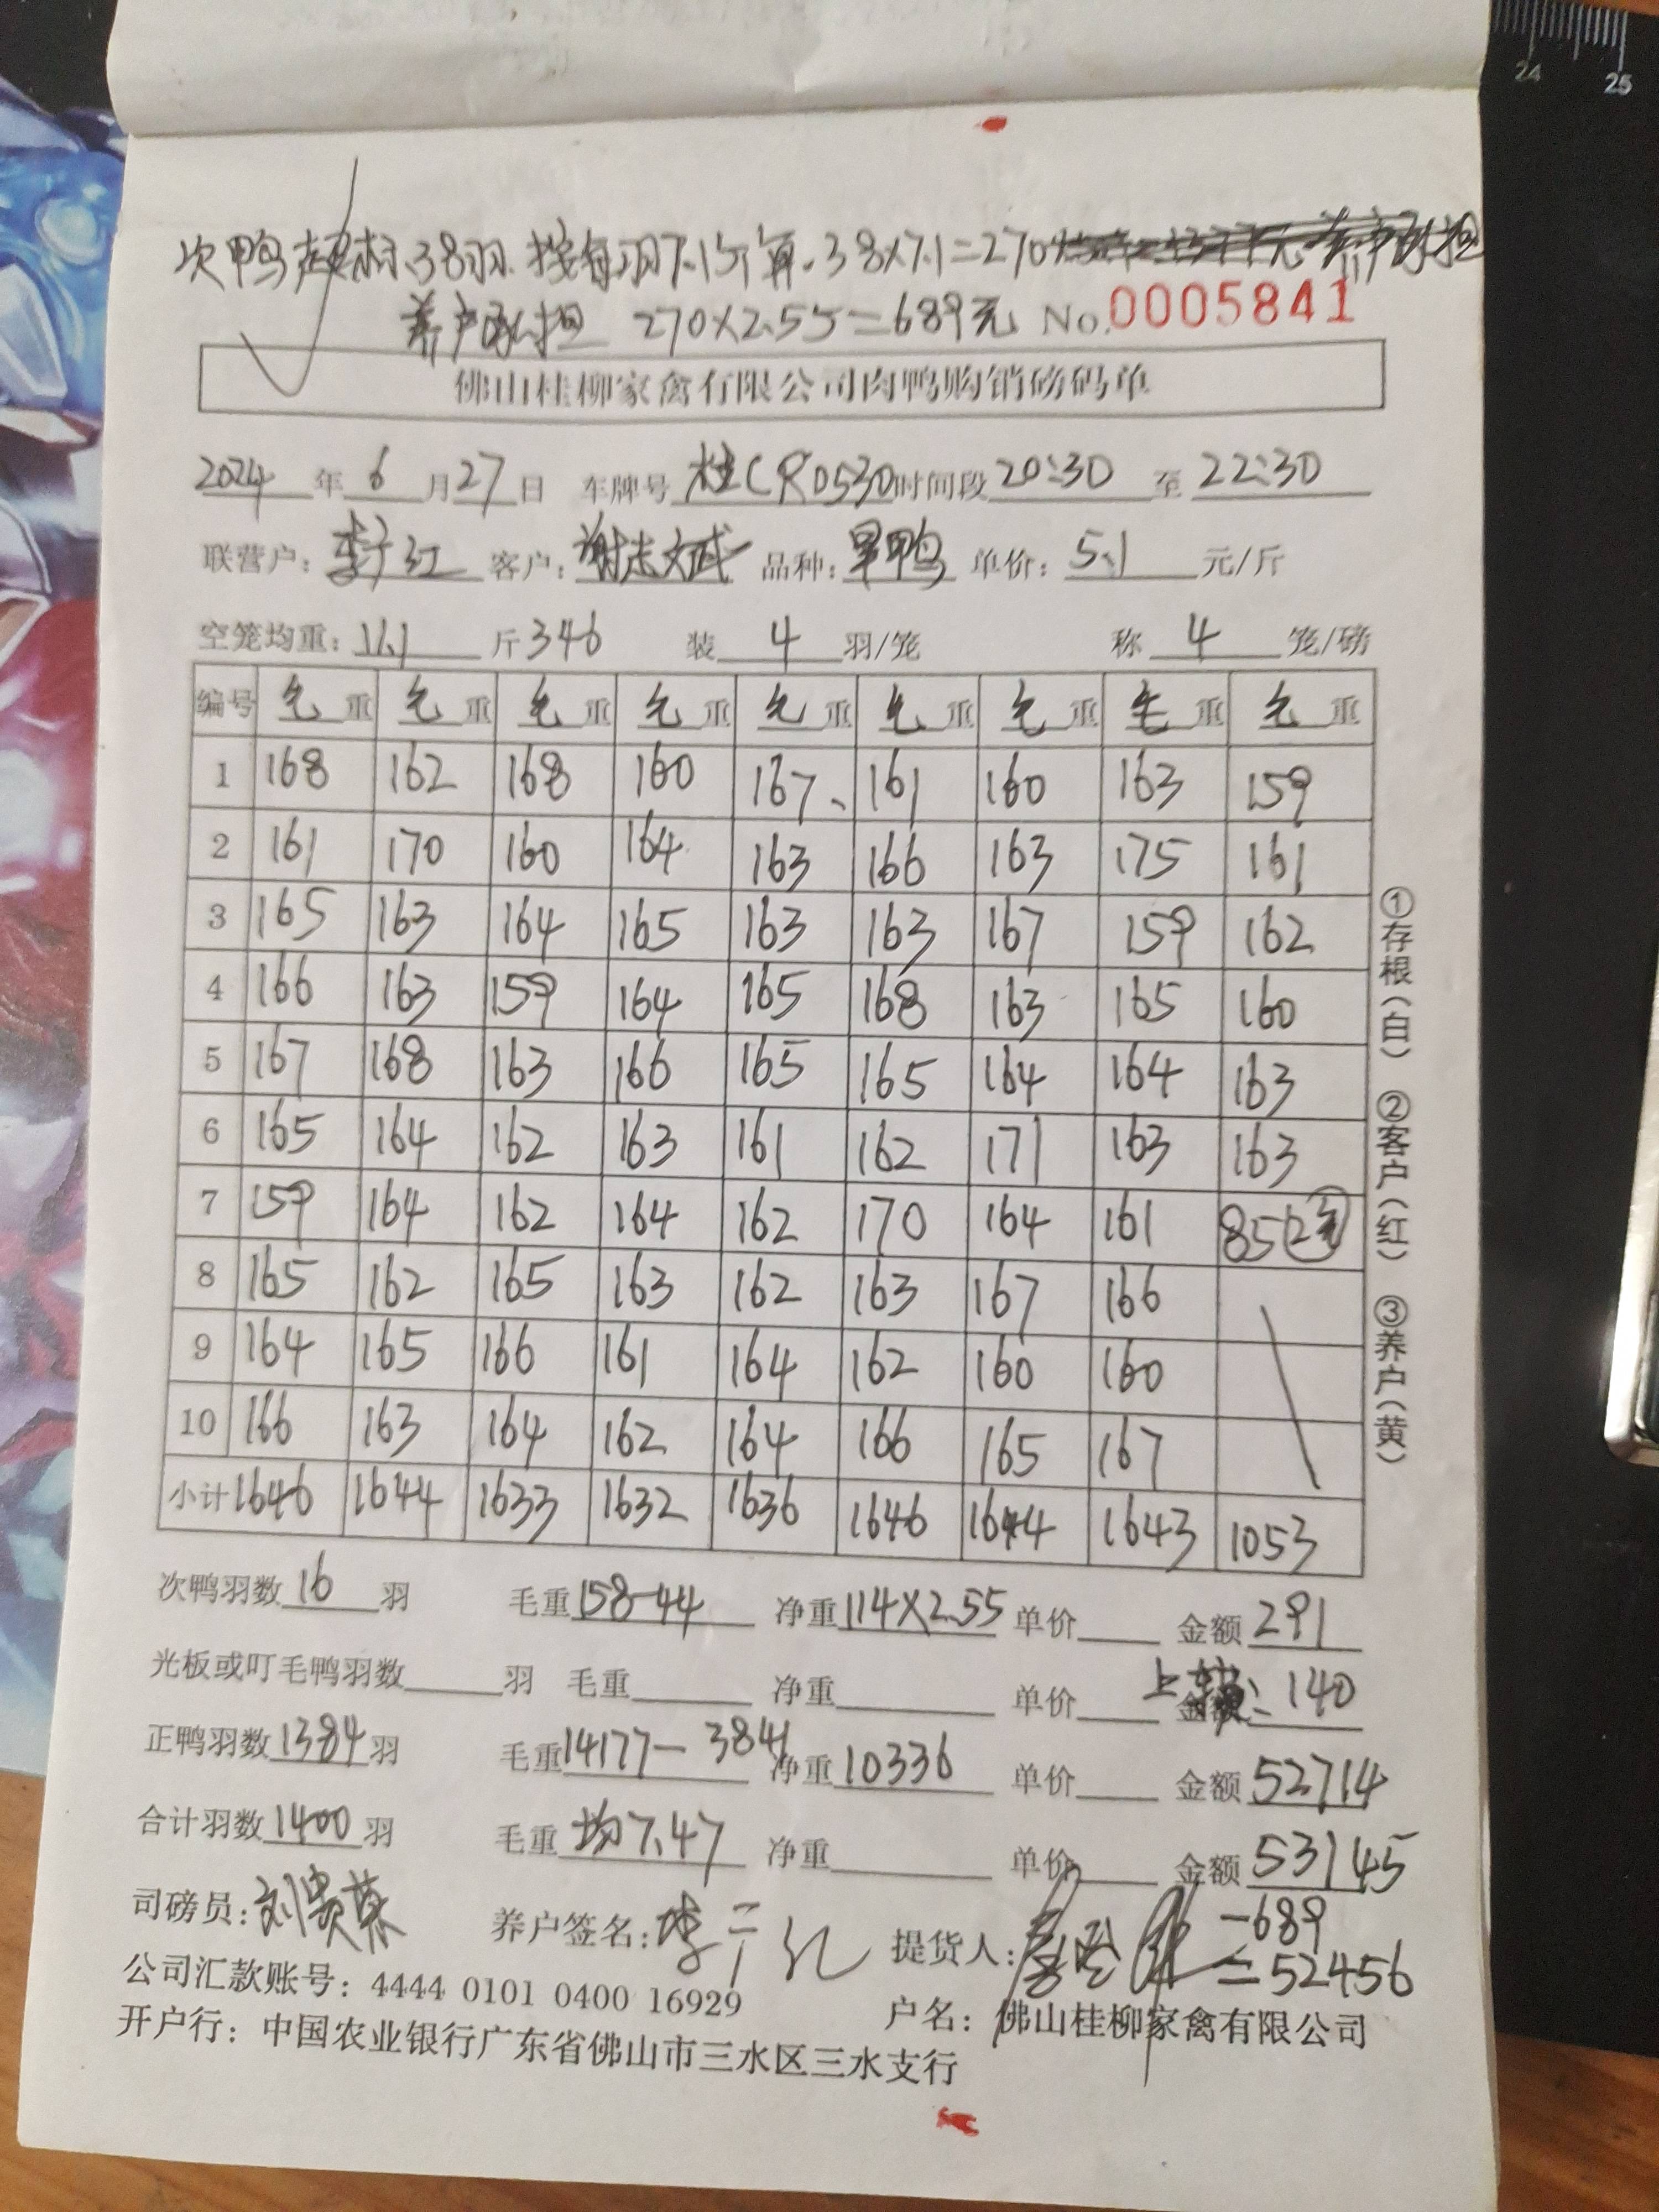 24 25
次鸭超标38羽.按每羽7.1斤算.38×7.1=270
养户承担 270×2.55=689元 No.0005841
佛山桂柳家禽有限公司肉鸭购销磅码单
2024年6月27日 车牌号桂CR0530时间段20:30至22:30
联营户：李于红 客户：谢志斌 品种：旱鸭 单价：5.1元/斤
空笼均重：11.1斤346 装4羽/笼 称4笼/磅
编号 毛重 毛重 毛重 毛重 毛重 毛重 毛重 毛重 毛重
1 168 162 168 160 167、 161 160 163 159
2 161 170 160 164 163 166 163 175 161
3 165 163 164 165 163 163 167 159 162
4 166 163 159 164 165 168 163 165 160
5 167 168 163 166 165 165 164 164 163
6 165 164 162 163 161 162 171 163 163
7 159 164 162 164 162 170 164 161 85 2笼
8 165 162 165 163 162 163 167 166
9 164 165 166 161 164 162 160 160
10 166 163 164 162 164 166 165 167
小计 1646 1644 1633 1632 1636 1646 1644 1643 1053
①存根（白） ②客户（红） ③养户（黄）
次鸭羽数16羽 毛重158-44 净重114×2.55 单价 金额291
光板或叮毛鸭羽数 羽 毛重 净重 单价 金额 140
正鸭羽数1384羽 毛重14177-3841 净重10336 单价 金额52714
合计羽数1400羽 毛重均7.47 净重 单价 金额53145
-689
=52456
司磅员：刘贵荣 养户签名：李于红 提货人：
公司汇款账号：4444 0101 0400 16929 户名：佛山桂柳家禽有限公司
开户行：中国农业银行广东省佛山市三水区三水支行